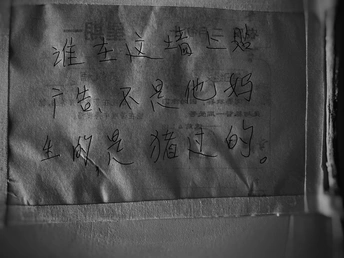 谁在这墙上贴
广告不是他妈
生的,是猪过的。